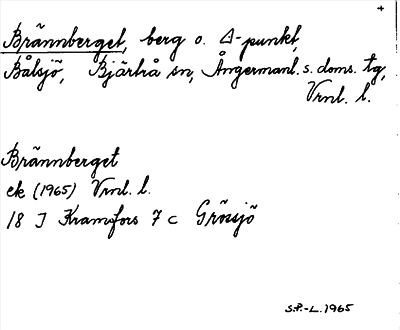 +
Brännberget, berg o. Δ-punkt,
Bålsjö, Bjärtrå sn, Ångermanl. s. doms. tg,
Vrnl. l.
Brännberget
ek (1965) Vrnl. l.
18 J Kramfors 7 c Grössjö
S.P.-L. 1965